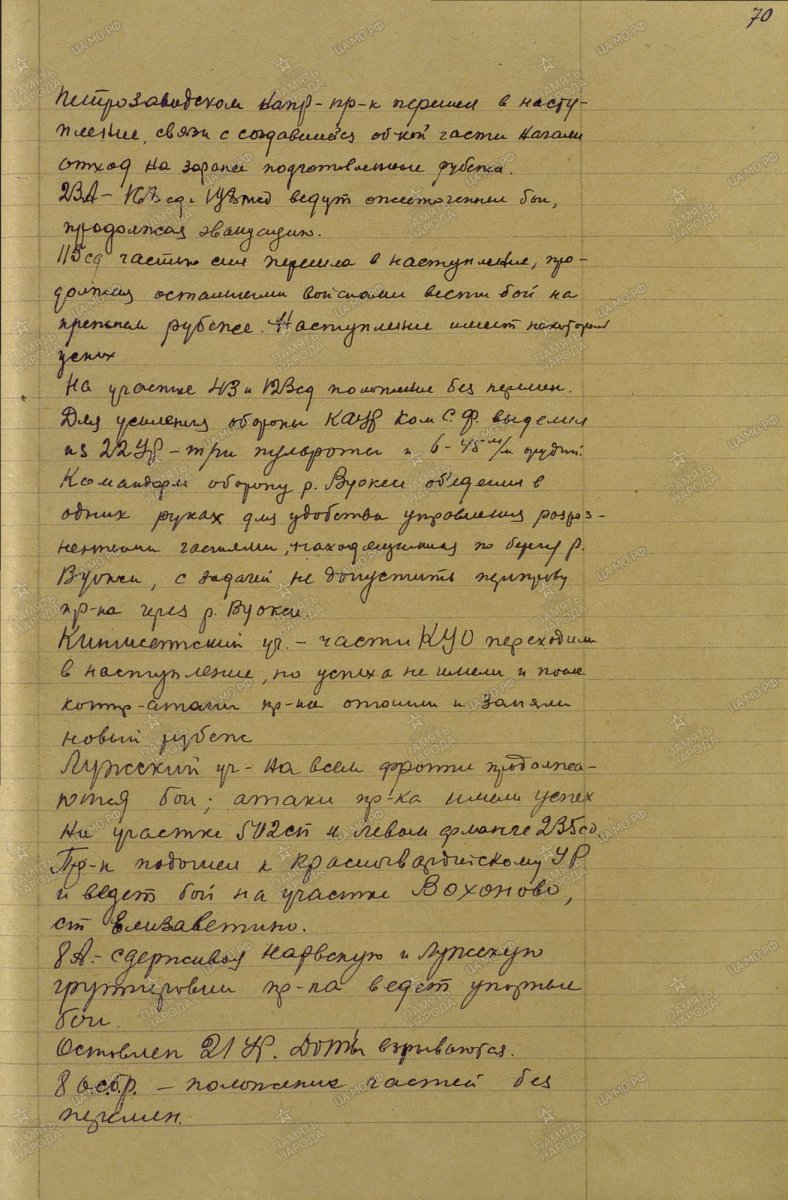 70
Петрозаводском напр- пр-к перешел в насту-
пление, связи с создавшейся об-кой части начали
отход на заранее подготовленные рубежа.
23А- 168 сд и 198 мсд ведут ожесточенные бои,
продолжая эвакуацию.
115сд частью сил перешла в наступление, про-
должая остальными войсками вести бой на
прежнем рубеже. Наступление имеет некоторый
успех
На участке 43 и 123сд положение без перемен.
Для усиления обороны КаУР Ком С.Ф. выделил
из 22 УР - три пульроты и 6- 45 м/м орудий.
Командарм оборону р. Вуокси обединил в
одних руках для удобства управления разроз-
ненными частями, находящимися по берегу р.
Вуокси, с задачей не допустить переправу
пр-ка через р. Вуокси.
Кингисеппский уч. - части КУО переходили
в наступление, но успеха не имели и после
контр-атаки пр-ка отошли и заняли
новый рубеж
Лужский уч- На всем фронте продолжа-
ются бои; атаки пр-ка имели успех
на участке 502сп и левом фланге 235сд.
Пр-к подошел к Красногвардейскому УР
и ведет бой на участке Вохоново,
ст Елизаветино.
8А.- сдерживая Нарвскую и Лужскую
группировки пр-ка ведет упорные
бои.
Оставлен 21 УР. ДОТы взрываются.
8 о.с.бр. - положение частей без
перемен.